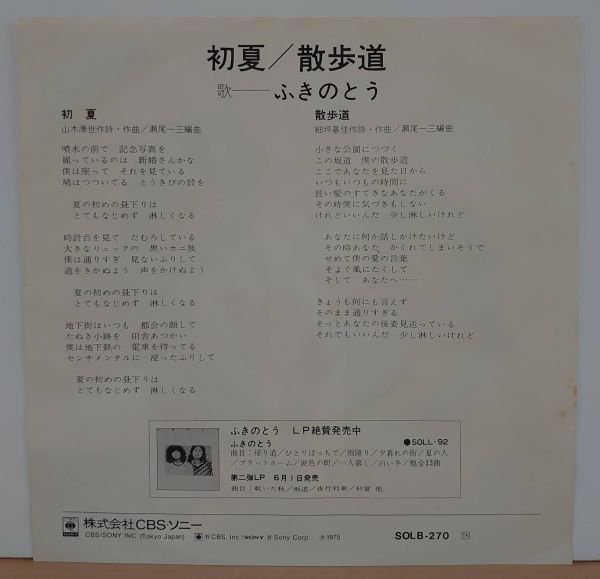 初夏／散歩道
歌――ふきのとう
初 夏
山木康世作詩・作曲／瀬尾一三編曲
噴水の前で 記念写真を
撮っているのは 新婚さんかな
僕は座って それを見ている
鳩はつついてる とうきびの殻を
夏の初めの昼下りは
とてもなじめず 淋しくなる
時計台を見て たむろしている
大きなリュックの 黒いカニ族
僕は通りすぎ 見ないふりして
道をきかぬよう 声をかけぬよう
夏の初めの昼下りは
とてもなじめず 淋しくなる
地下街はいつも 都会の顔して
たぬき小路を 田舎あつかい
僕は地下鉄の 電車を待ってる
センチメンタルに 浸ったふりして
夏の初めの昼下りは
とてもなじめず 淋しくなる
散歩道
細坪基佳作詩・作曲／瀬尾一三編曲
小さな公園につづく
この坂道 僕の散歩道
ここであなたを見た日から
いつもいつもの時間に
長い髪のすてきなあなたがくる
その時僕に気づきもしない
けれどいいんだ 少し淋しいけれど
あなたに何か話しかけたいけど
その時あなた かくれてしまいそうで
せめて僕の愛の言葉
そよぐ風にたくして
そして あなたへ……
きょうも何にも言えず
そのまま通りすぎる
そっとあなたの後姿見送っている
それでもいいんだ 少し淋しいけれど
ふきのとう LP絶賛発売中
ふきのとう ●SOLL-92
曲目：帰り道／ひとりぼっちで／雨降り／夕暮れの街／夏の人
／プラットホーム／涙色の町／一人暮し／白い冬／他全13曲
第二弾LP 6月1日発売
曲目：乾いた秋／坂道／夜行列車／初夏 他
SONY
株式会社CBS・ソニー
CBS/SONY INC. (Tokyo Japan) ®CBS, Inc./SONY ®Sony Corp. Ⓟ1975 SOLB-270